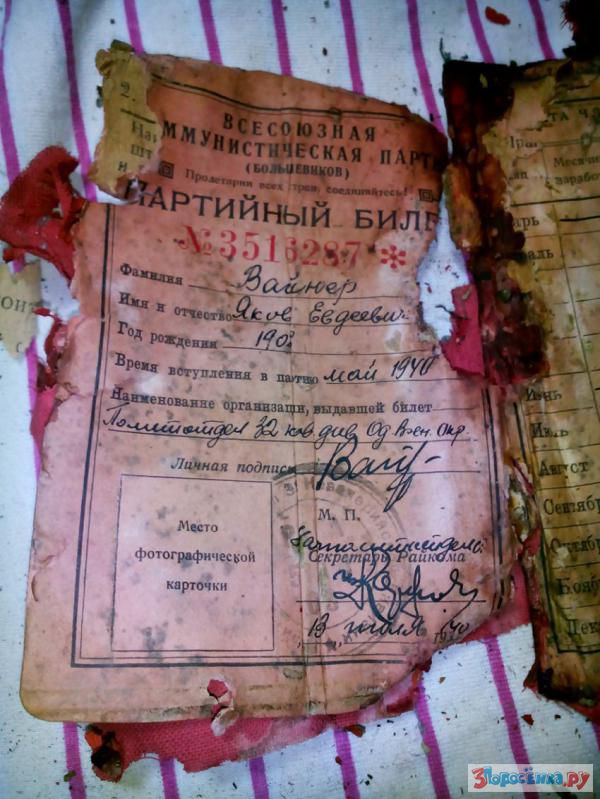 2.
ВСЕСОЮЗНАЯ
ММУНИСТИЧЕСКАЯ ПАРТИ
(БОЛЬШЕВИКОВ)
Пролетарии всех стран, соединяйтесь!
ПАРТИЙНЫЙ БИЛЕ
№3516287 *
Фамилия Вайнер
Имя и отчество Яков Евдеевич
Год рождения 190
Время вступления в партию май 1940
Наименование организаци, выдавшей билет
Политотдел 32 кав див Од Воен. Окр
Личная подпись
Место
фотографической
карточки
М. П.
Секретарь Райкома
13 июля 1940
Месячн
заработ
Июнь
Июль
Август
Сентябр
Октябрь
Нояб
Дек
3Поросенка.ру